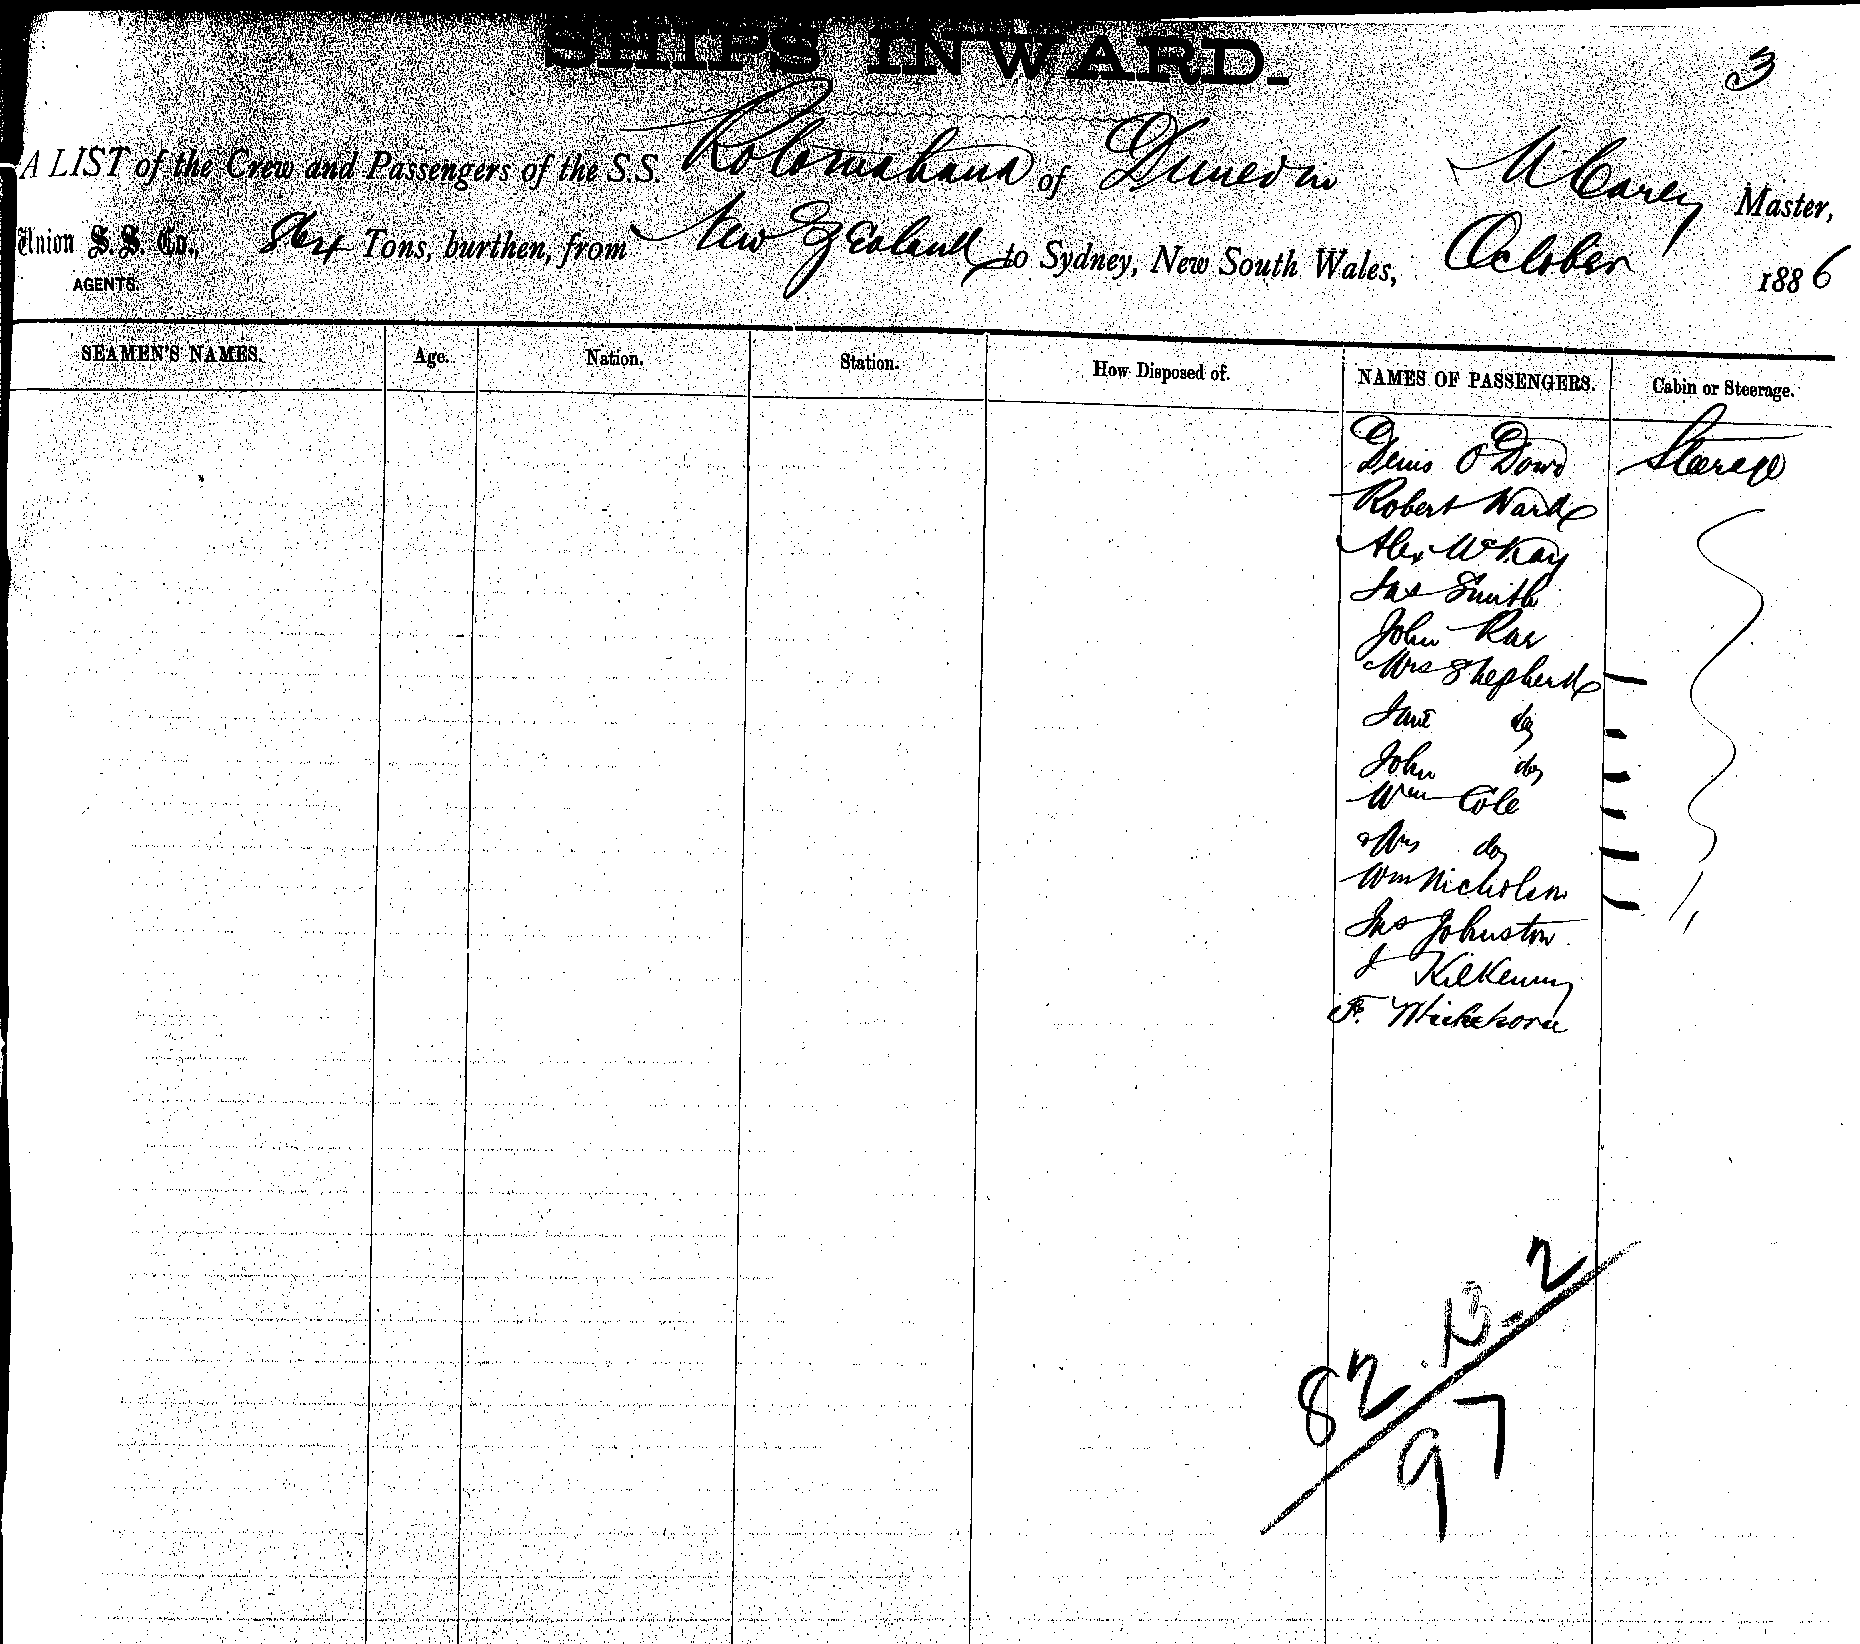 SHIPS INWARD.
3
A LIST of the Crew and Passengers of the S.S. Rotomahana of Dunedin M Carey Master,
Union S. S. Co., 864 Tons, burthen, from New Zealand to Sydney, New South Wales, October 1886
AGENTS.
SEAMEN'S NAMES. Age. Nation. Station. How Disposed of. NAMES OF PASSENGERS. Cabin or Steerage.
Denis O'Dowd Steerage
Robert Ward
Alex McKay
Jas Smith
John Rae
Mrs Shepherd
Jane do
John do
Wm Cole
Mrs do
Wm Nicholson
Jas Johnston
J Kilkenny
F.
82.13.2
97